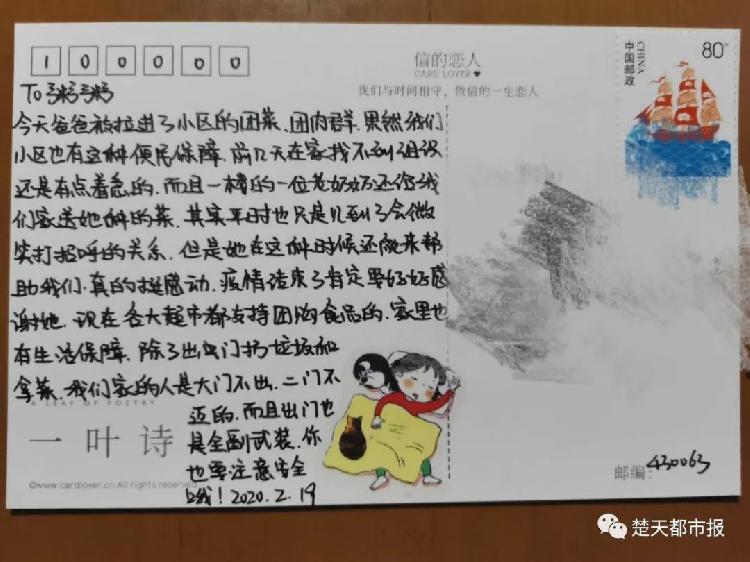 100000
信的恋人
CARD LOVER
我们与时间相守,做信的一生恋人
中国邮政
CHINA
80分
To 粥粥
今天爸爸被拉进了小区的团菜、团肉群.果然我们
小区也有这种便民保障.前几天在家找不到组织
还是有点着急的.而且一楼的一位老奶奶还给我
们家送她种的菜.其实平时也只是见到了会微
笑打招呼的关系.但是她在这种时候还能来帮
助我们.真的挺感动.疫情结束了肯定要好好感
谢她.现在各大超市都支持团购食品的.家里也
有生活保障.除了出门扔垃圾和
拿菜.我们家的人是大门不出.二门不
迈的.而且出门也
是全副武装.你
也要注意安全
哦!2020.2.19
A LEAF OF POETRY
一叶诗
©www.cardlover.cn All rights reserved
邮编:430063
楚天都市报